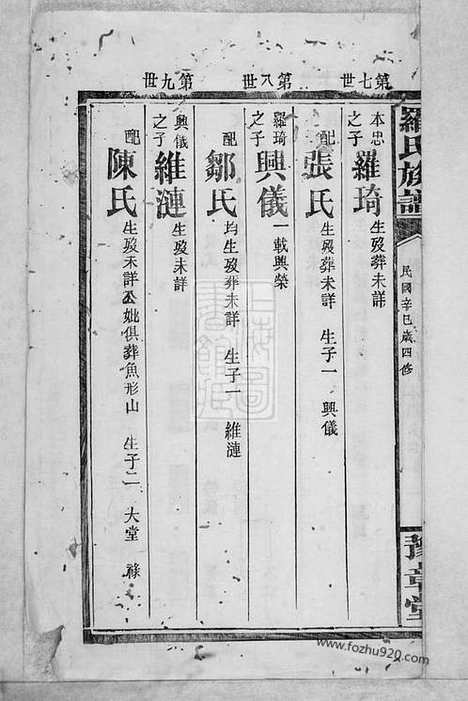 羅氏族譜
民國辛巳歲四修
豫章堂
第七世
本忠之子 羅琦 生歿葬未詳
配 張氏 生歿葬未詳 生子一 興儀
第八世
羅琦之子 興儀 一載興榮
配 鄒氏 均生歿葬未詳 生子一 維漣
第九世
興儀之子 維漣 生歿未詳
配 陳氏 生歿未詳公妣俱葬魚形山 生子二 大堂 祿
www.fozhu920.com